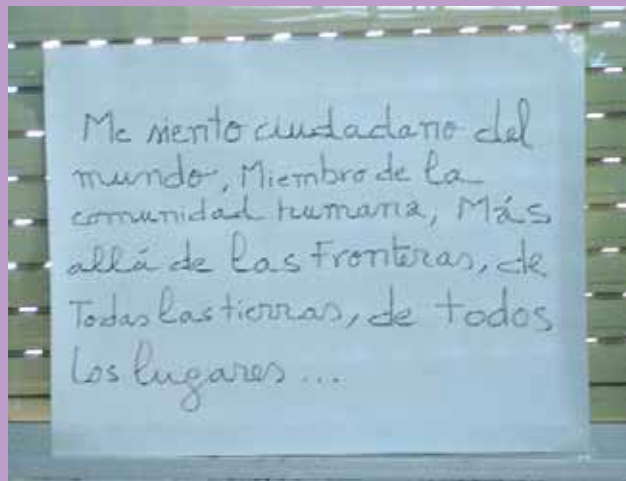 Me siento ciudadano del
mundo, Miembro de la
comunidad humana, Más
allá de las Fronteras, de
Todas las tierras, de todos
los lugares...